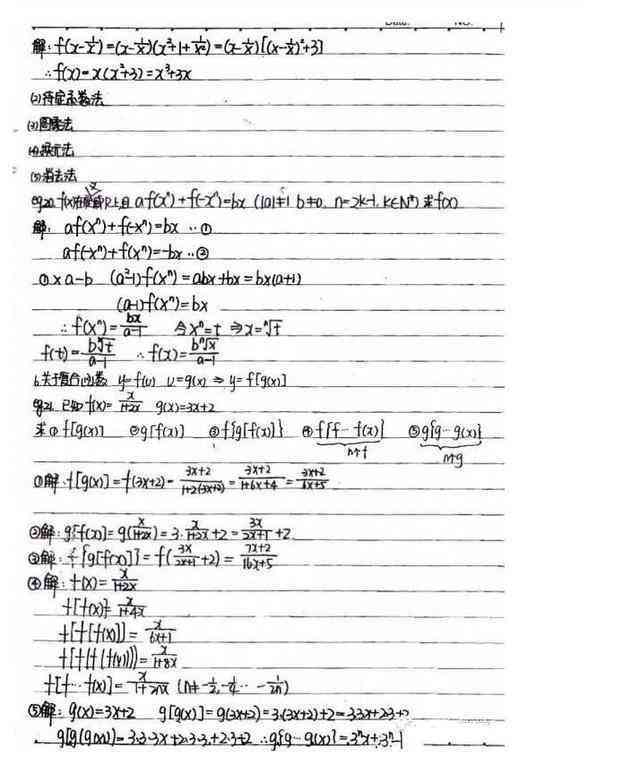 Date. No.
解: f(x-1/x)=(x-1/x)(x²+1+1/x²)=(x-1/x)[(x-1/x)²+3]
∴f(x)=x(x²+3)=x³+3x
(2)待定系数法
(3)图像法
(4)换元法
(5)消去法
eg20. f(x)在R上且 af(xⁿ)+f(-xⁿ)=bx (|a|≠1 b≠0, n=2k-1, k∈N*) 求f(x)
解: af(xⁿ)+f(-xⁿ)=bx ··①
af(-xⁿ)+f(xⁿ)=-bx ··②
①×a-b (a²-1)f(xⁿ)=abx+bx=bx(a+1)
(a-1)f(xⁿ)=bx
∴f(xⁿ)=bx/a-1 令xⁿ=t ⇒x=ⁿ√t
f(t)=bⁿ√t/a-1 ∴f(x)=bⁿ√x/a-1
6.关于复合函数 y=f(u) u=g(x) ⇒ y=f[g(x)]
eg21. 已知f(x)=x/1+2x g(x)=3x+2
求①f[g(x)] ②g[f(x)] ③f{g[f(x)]} ④f[f···f(x)] ⑤g[g···g(x)]
n个f n个g
①解: f[g(x)]=f(3x+2)=3x+2/1+2(3x+2)=3x+2/1+6x+4=3x+2/6x+5
②解: g[f(x)]=g(x/1+2x)=3·x/1+2x+2=3x/2x+1+2
③解: f{g[f(x)]}=f(3x/2x+1+2)=7x+2/16x+5
④解: f(x)=x/1+2x
f[f(x)]=x/1+4x
f[f[f(x)]]=x/6x+1
f[f(f(f(x)))]=x/1+8x
f[f···f(x)]=x/1+2nx (n≠-1/2,-1/4···-1/2n)
⑤解: g(x)=3x+2 g[g(x)]=g(3x+2)=3·(3x+2)+2=3·3x+2·3+2
g[g(g(x))]=3·3·3x+2·3·3+2·3+2 ∴g[g···g(x)]=3ⁿx+3ⁿ-1